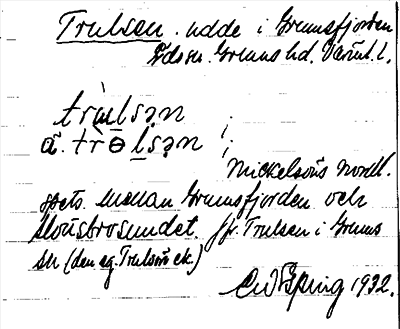 Trulsen. udde i Grumsfjorden
Edssn. Grums hd. Värml. l.
trɯlsən
ã. trɵlsən
Mickelsöns nordl.
spets. Mellan Grumsfjorden och
Slottsbrosundet. Jfr. Trulsen i Grums
sn (den eg. Trulsön ek.)
1932.